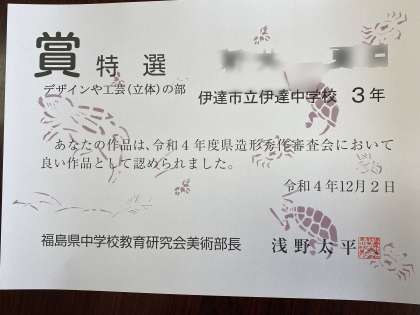 賞 特選
デザインや工芸(立体)の部
伊達市立伊達中学校 3年
あなたの作品は、令和4年度県造形秀作審査会において
良い作品として認められました。
令和4年12月2日
福島県中学校教育研究会美術部長 浅野太平